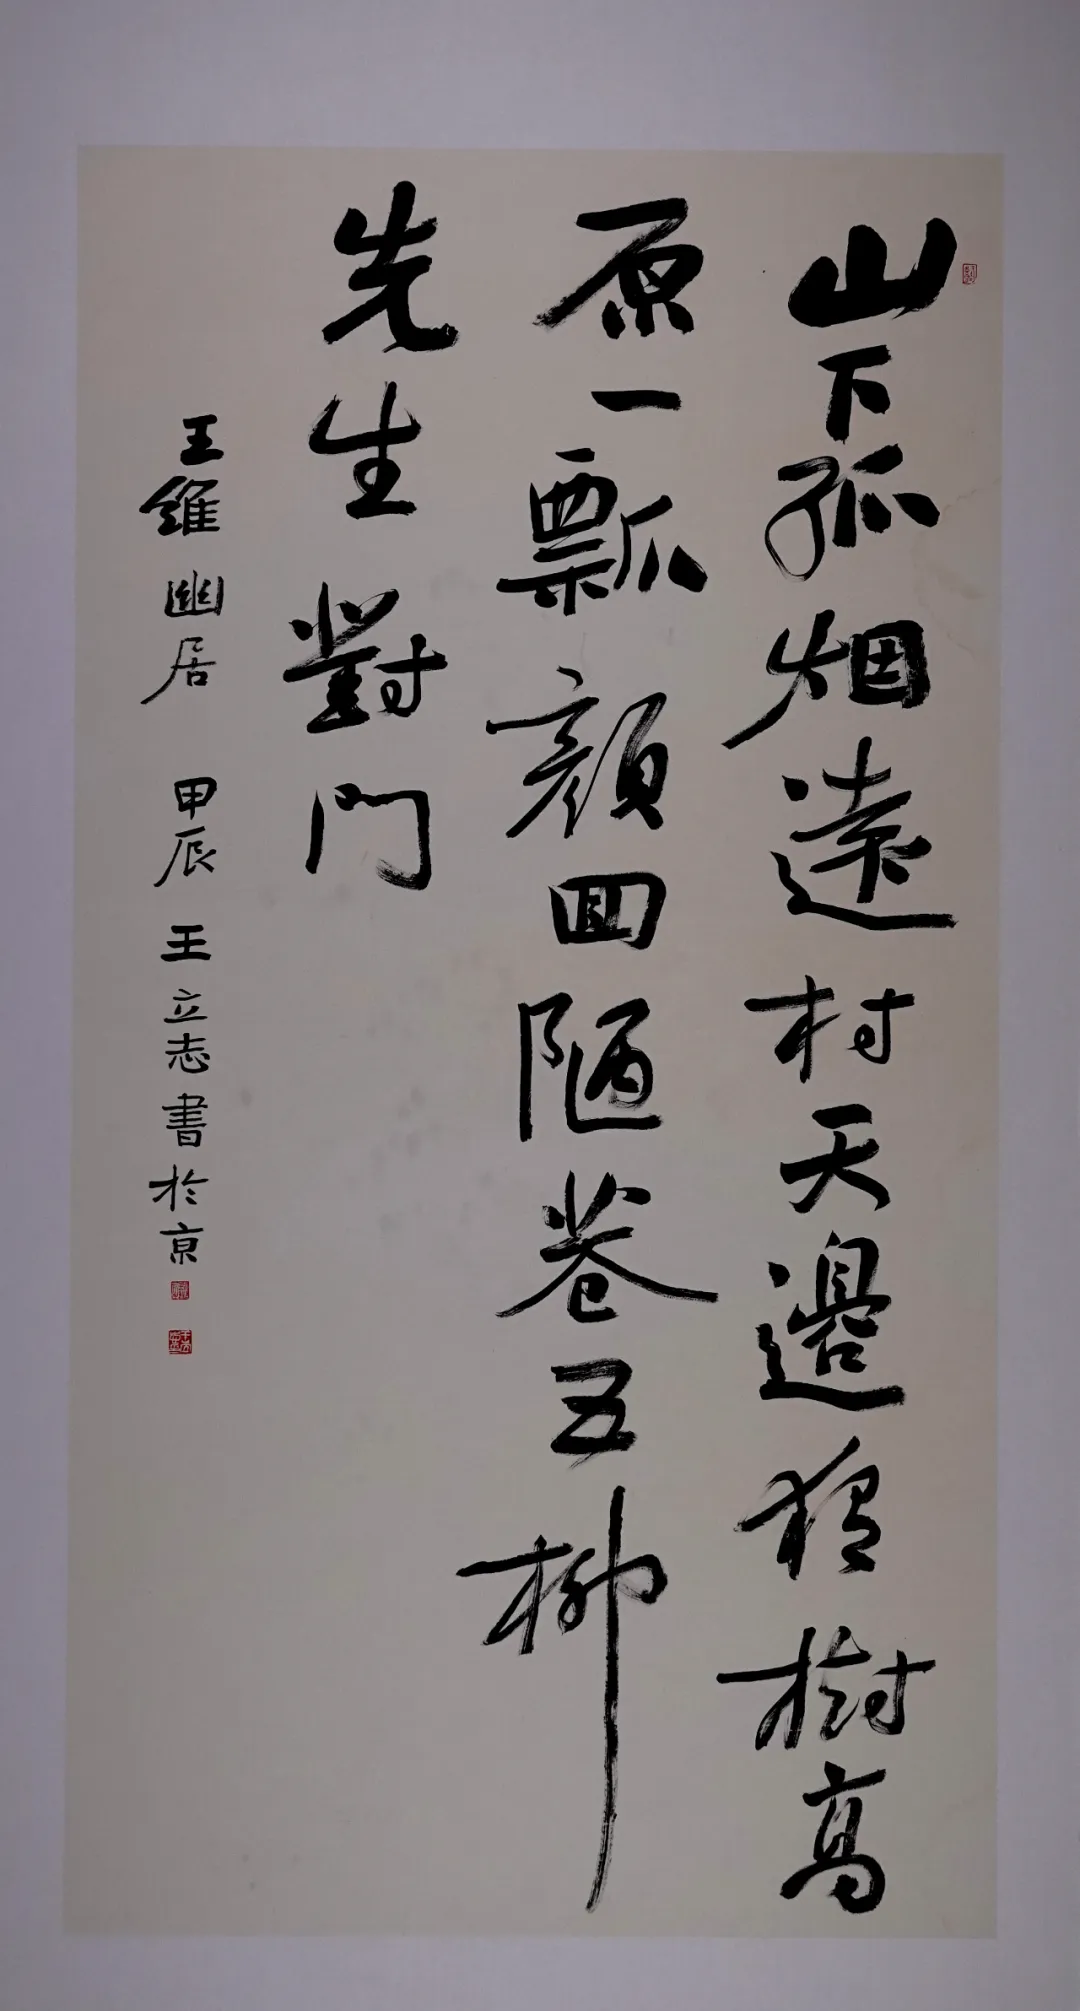 山下孤烟遠村天邊獨樹高
原一瓢顔回陋巷五柳
先生對門
王維 幽居 甲辰 王立志書於京